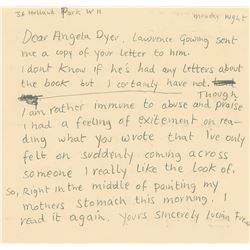 36 Holland Park W11 Monday night
Dear Angela Dyer, Lawrence Gowing sent
me a copy of your letter to him.
I dont know if he's had any letters about
the book but I certainly have not.
Though
I am rather immune to abuse and praise
I had a feeling of exitement on rea-
ding what you wrote that I've only
felt on suddenly coming across
someone I really like the look of.
So, Right in the middle of painting my
mothers stomach this morning, I
read it again. Yours Sincerely Lucian Freud